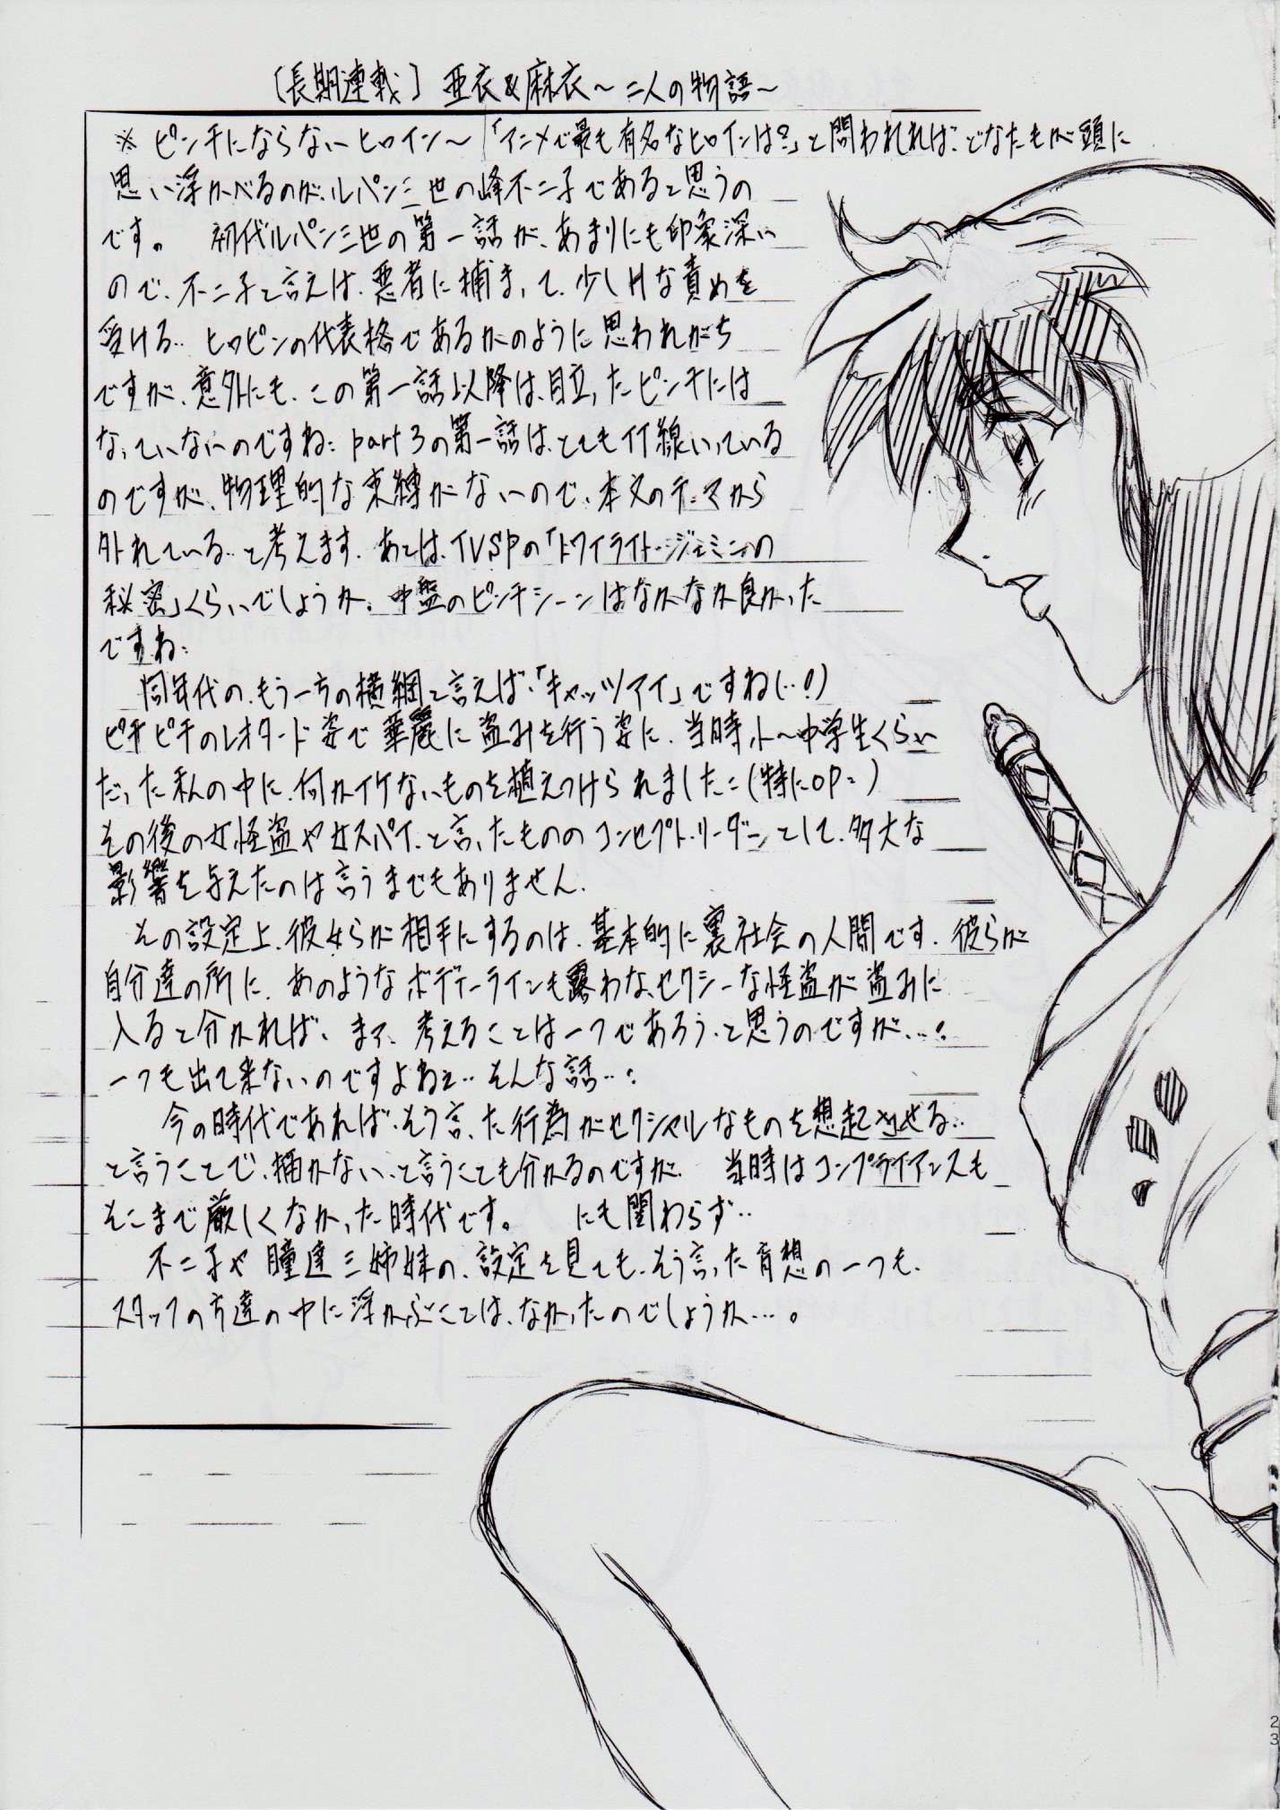 〔長期連載〕 亜衣&麻衣～二人の物語～
※ピンチにならないヒロイン～「アニメで最も有名なヒロインは?」と問われれば、どなたもが頭に
思い浮かべるのが、ルパン三世の峰不二子であると思うの
です。 初代ルパン三世の第一話が、あまりにも印象深い
ので、不二子と言えば、悪者に捕まって、少しHな責めを
受ける‥ヒロピンの代表格であるかのように思われがち
ですが、意外にも、この第一話以降は、目立ったピンチには
なっていないのですね: part3の第一話は、とても行線いっている
のですが、物理的な束縛がないので、本文のテーマから
外れている‥と考えます。あとは、TVSPの「トワイライト・ジェミニの
秘密」くらいでしょうか。中盤のピンチシーンはなかなか良かった
ですね:
同年代の、もう一ちの横綱と言えば、「キャッツアイ」ですね(‥!)
ピチピチのレオタード姿で華麗に盗みを行う姿に、当時、小～中学生くらい
だった私の中に、何かイケないものを植えつけられました:(特にOP:)
その後の女怪盗や女スパイ、と言ったもののコンセプト・リーダーとして、多大な
影響を与えたのは言うまでもありません。
その設定上、彼女らが相手にするのは、基本的に裏社会の人間です。彼らが
自分達の所に、あのようなボディーラインも露わな、セクシーな怪盗が盗みに
入ると分かれば、まぁ、考えることは一つであろう、と思うのですが‥‥!
一つも出て来ないのですよねェ‥そんな話‥!
今の時代であれば、そう言った行為がセクシャルなものを想起させる‥
と言うことで、描かない、と言うことも分かるのですが 当時はコンプライアンスも
そこまで厳しくなかった時代です。 にも関わらず‥
不二子や瞳達三姉妹の、設定を見ても、そう言った妄想の一つも、
スタッフの方達の中に浮かぶことは、なかったのでしょうか‥‥。
23